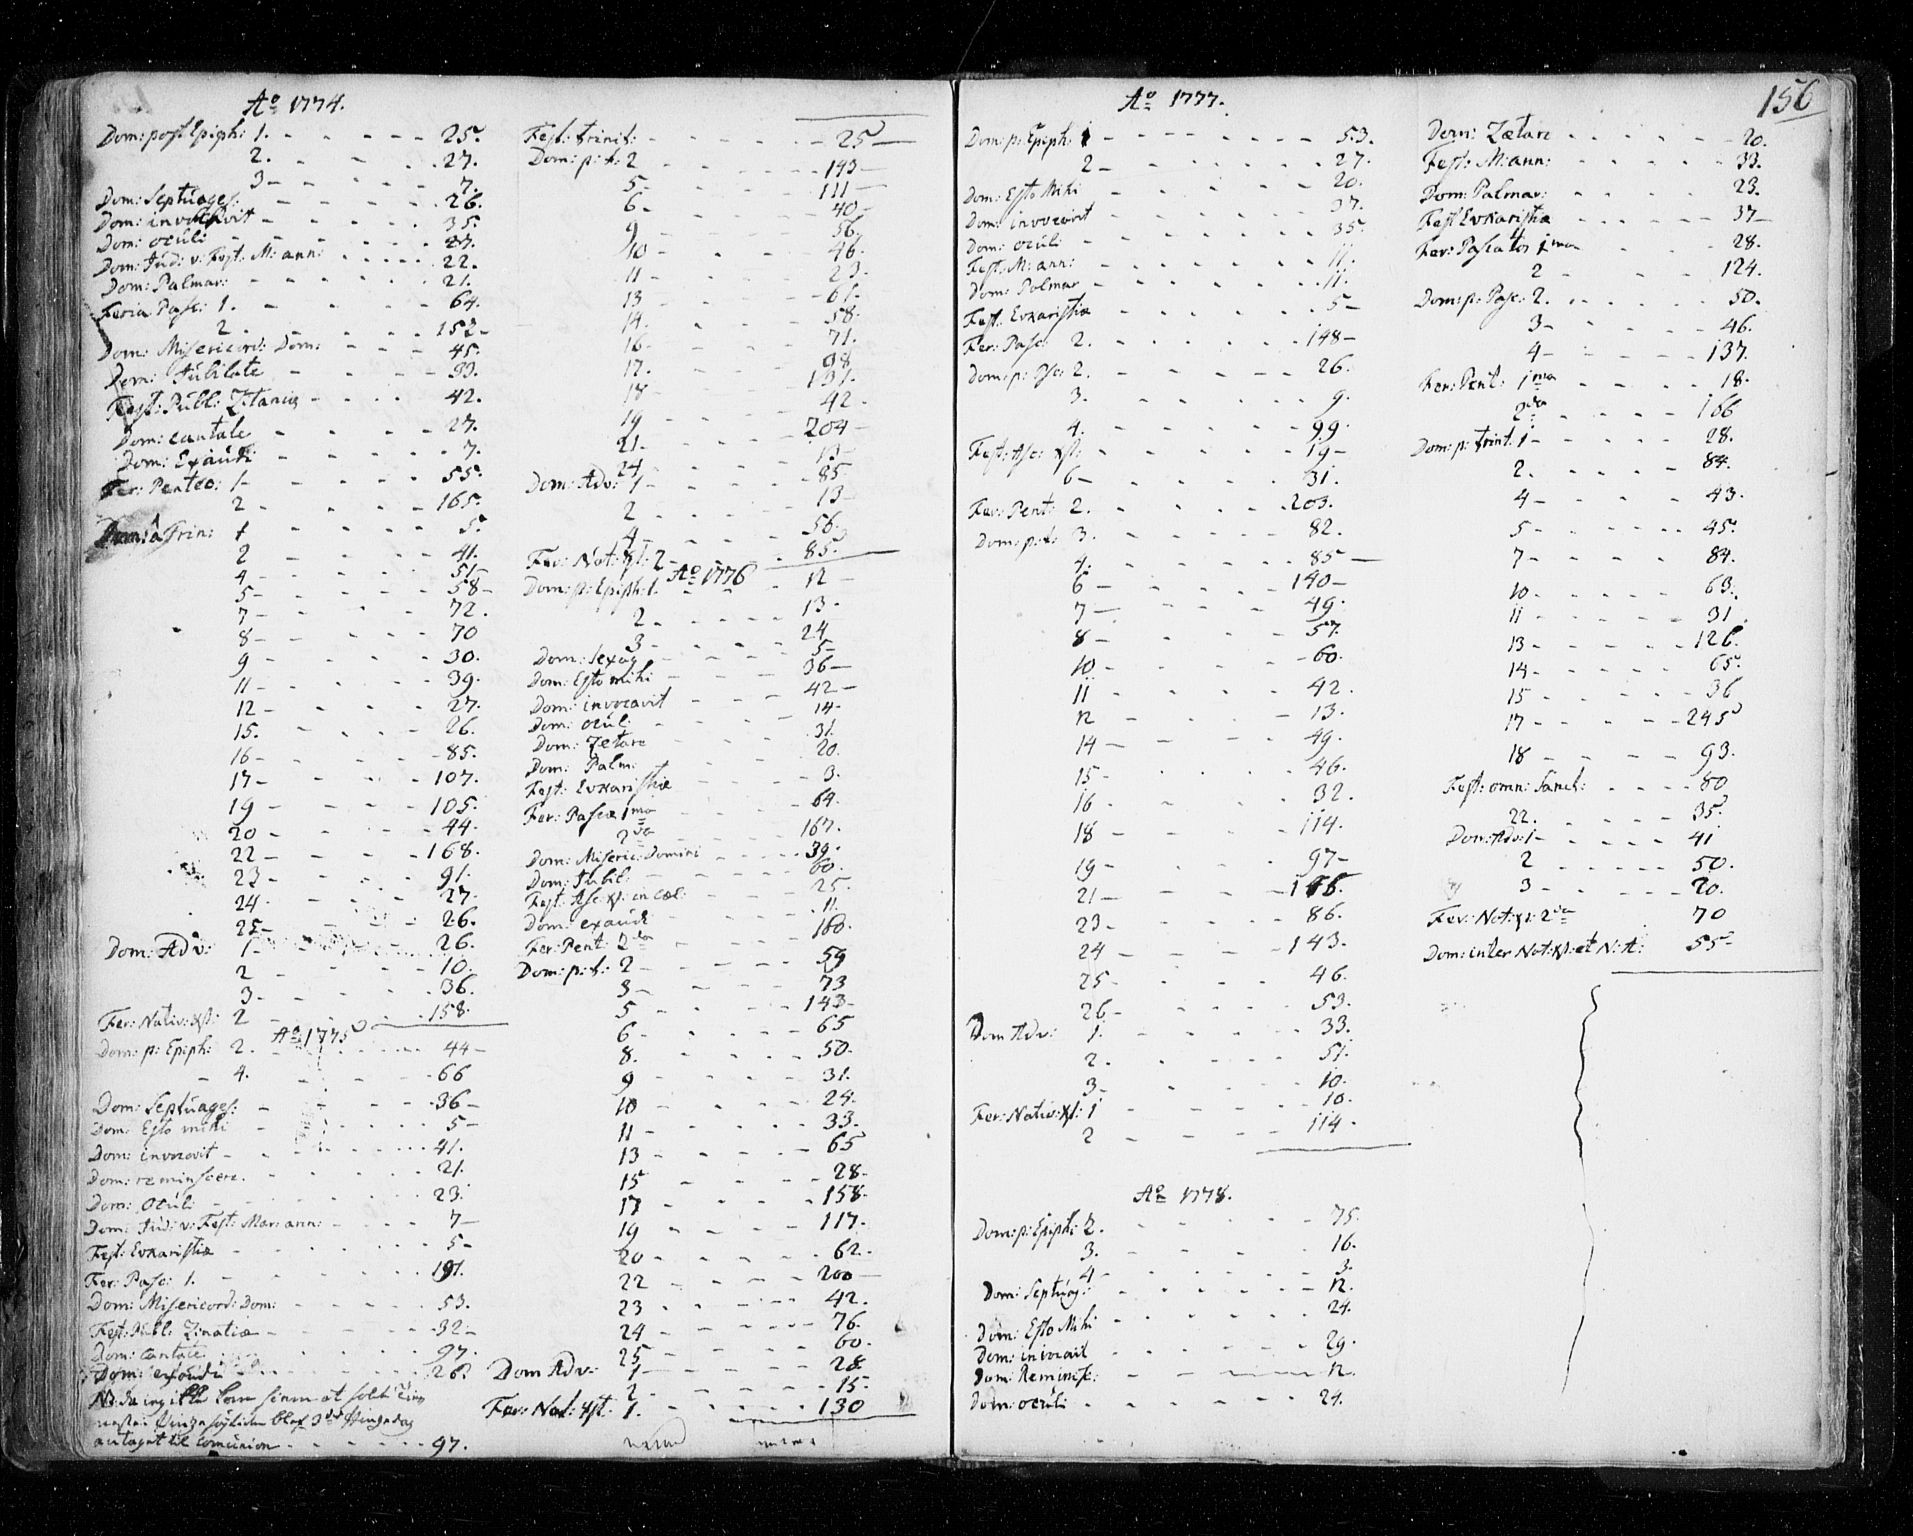 Ao 1774.
Dom: post Epiph: 1. - - - 25.
2. - - - 27.
3 - - - 7.
Dom: Septuages: - - - 26.
Dom: invocavit - - - 35.
Dom: oculi - - - 27.
Dom: Jud: v: Fest: M: ann: - - - 22.
Dom: Palmar: - - - 21.
Feria Pasc: 1. - - - 64.
2. - - - 152-
Dom: Misericord: Dom: - - - 45.
Dom: Jubilate - - - 33.
Fest: Publ: Litaniæ - - - 42.
Dom: cantate - - - 27.
Dom: Exaudi - - - 7.
Fer: Pentec: 1- - - - 55.
2 - - - 165.
Dom: a Trin: 1 - - - 5.
2 - - - 41.
4 - - - 51-
5 - - - 58-
7 - - - 72.
8 - - - 70
9 - - - 30.
11 - - - 39.
12 - - - 27.
15. - - - 26.
16 - - - 85.
17 - - - 107.
19 - - - 105.
20 - - - 44.
22 - - - 168.
23 - - - 91.
24 - - - 27.
25 - - - 26.
Dom: Adv: 1- - - - 26.
2 - - - 10.
3 - - - 36.
Fer: Nativ: Xsti: 2 - - - 158.
Ao 1775
Dom: p: Epiph: 2. - - - 44-
4. - - - 66
Dom: Septuages: - - - 36-
Dom: Esto mihi - - - 5-
Dom: invocavit - - - 41.
Dom: reminscere. - - - 21.
Dom: Oculi - - - 23.
Dom: Jud: v: Fest: Mar: ann: - - - 7-
Fest: Evkaristiæ - - - 5-
Fer: Pasc: 1. - - - 191.
Dom: Misericord: Dom: - - - 53.
Fest: Publ: - - - 32-
Dom: cantate - - - 97.
Dom: exaudi - - - 26.
antaget til comunion - - - 97.
Fest: trinit: - - - 25-
Dom: p: t: 2 - - - 143-
5 - - - 111-
6 - - - 40-
9 - - - 56.
10 - - - 46.
11 - - - 23.
13 - - - 61.
14. - - - 58.
16 - - - 71.
17. - - - 98
18 - - - 131.
19 - - - 42.
21. - - - 204-
24 - - - 13-
Dom: Adv: 1- - - - 85
2 - - - 13-
4 - - - 56.
Fer: Nat: Xsti: 2 - - - 85.
Ao 1776
Dom: p: Epiph: 1. - - - 12-
2. - - - 13.
3 - - - 24
Dom: Sexag - - - 5-
Dom: Esto mihi - - - 36-
Dom: invocavit - - - 42-
Dom: oculi - - - 14.
Dom: Lætare - - - 31.
Dom: Palm: - - - 20.
Fest: Evkaristiæ - - - 3.
Fer: Pascæ 1ma - - - 64.
2da - - - 167.
Dom: Miseric: Domini - - - 39.
Dom: Jubil: - - - 60.
Fest: Asc: Xsti in cæl: - - - 25.
Dom: exaudi - - - 11.
Fer: Pent: 2da - - - 180.
Dom: p: t: 2 - - - 59
3 - - - 73
5 - - - 143-
6 - - - 65
8. - - - 50.
9 - - - 31.
10 - - - 24.
11 - - - 33.
13 - - - 65
15 - - - 28.
17 - - - 158.
19 - - - 117.
20 - - - 62.
22 - - - 200-
23 - - - 42.
24 - - - 76.
25 - - - 60.
Dom Adv: 1- - - - 28.
2 - - - 15.
Fer: Nat: Xsti: 1. - - - 130
156
Ao 1777.
Dom: p: Epiph: 1 - - - 53.
2 - - - 27.
Dom: Esto Mihi - - - 20.
Dom: invocavit - - - 37.
Dom: oculi - - - 35.
Fest: M: ann: - - - 11.
Dom: Palmar - - - 11.
Fest: Evkaristiæ - - - 5-
Fer: Pasc: 2. - - - 148-
Dom: p: Psc: 2. - - - 26.
3. - - - 9.
4. - - - 99.
Fest: Asc: Xsti: - - - 19-
6 - - - 31.
Fer: Pent: 2. - - - 203.
Dom: p: t: 3. - - - 82.
4. - - - 85-
6 - - - 140-
7 - - - 49.
8 - - - 57.
10 - - - 60.
11 - - - 42.
12 - - - 13.
14 - - - 49.
15 - - - 46.
16. - - - 32.
18 - - - 114.
19 - - - 97-
21 - - - 166.
23 - - - 86.
24 - - - 143.
25 - - - 46.
26 - - - 53.
Dom Adv: 1. - - - 33.
2. - - - 51.
3 - - - 10.
Fer: Nativ: Xsti: 1 - - - 10.
2 - - - 114.
Ao 1778.
Dom: p: Epiph: 2. - - - 75.
3. - - - 16.
4 - - - 3.
Dom: Septuag: - - - 12.
Dom: Esto Mihi - - - 24.
Dom: invocavit - - - 29.
Dom: Reminisc: - - - 12.
Dom: oculi - - - 24.
Dom: Lætare - - - 20.
Fest: M: ann: - - - 33.
Dom: Palmar: - - - 23.
Fest Evkaristiæ - - - 37-
Fer: Pascatos 1ma - - - 28.
2 - - - 124.
Dom: p: Pasc: 2. - - - 50.
3 - - - 46.
4 - - - 137.
Fer: Pent: 1ma - - - 18.
2da - - - 166
Dom: p: trint: 1- - - - 28.
2. - - - 84.
4 - - - 43.
5 - - - 45.
7 - - - 84.
10 - - - 63.
11 - - - 31
13 - - - 126.
14 - - - 65.
15 - - - 36
17 - - - 245
18 - - - 93.
Fest: omn: Sanct: - - - 80
22. - - - 35
Dom: Adv: 1- - - - 41
2 - - - 50.
3 - - - 20.
Fer: Nat: Xsti: 2da 70
Dom: inter Nat: Xsti: et N: A: 55-